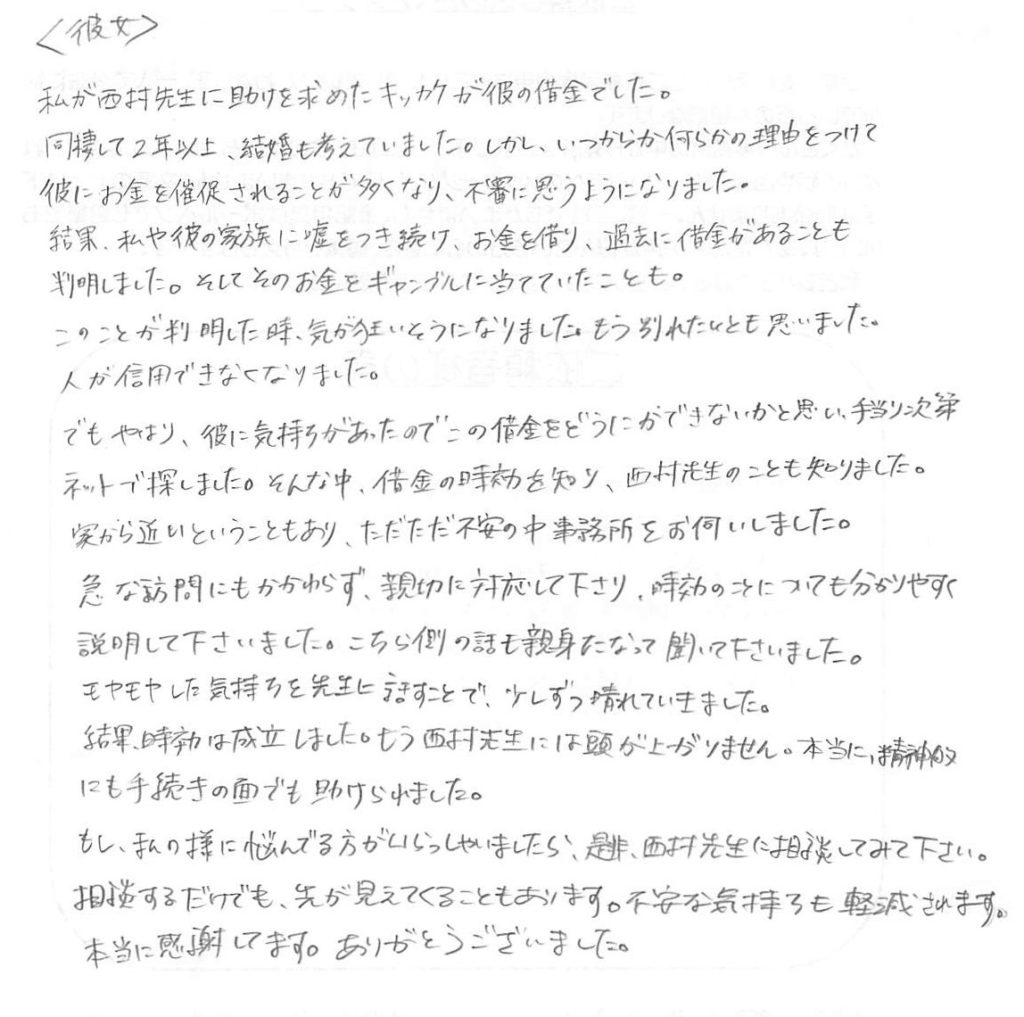 <彼女>
私が西村先生に助けを求めたキッカケが彼の借金でした。
同棲して2年以上、結婚も考えていました。しかし、いつからか何らかの理由をつけて
彼にお金を催促されることが多くなり、不審に思うようになりました。
結果、私や彼の家族に嘘をつき続け、お金を借り、過去に借金があることも
判明しました。そしてそのお金をギャンブルに当てていたことも。
このことが判明した時、気が狂いそうになりました。もう別れたいとも思いました。
人が信用できなくなりました。
でもやはり、彼に気持ちがあったのでこの借金をどうにかできないかと思い、手当り次第
ネットで探しました。そんな中、借金の時効を知り、西村先生のことも知りました。
家から近いということもあり、ただただ不安の中事務所をお伺いしました。
急な訪問にもかかわらず、親切に対応して下さり、時効のことについても分かりやすく
説明して下さいました。こちら側の話も親身になって聞いて下さいました。
モヤモヤした気持ちを先生に話すことで、少しずつ晴れていきました。
結果、時効は成立しました。もう西村先生には頭が上がりません。本当に、精神的
にも手続きの面でも助けられました。
もし、私の様に悩んでる方がいらっしゃいましたら、是非、西村先生に相談してみて下さい。
相談するだけでも、先が見えてくることもあります。不安な気持ちも軽減されます。
本当に感謝してます。ありがとうございました。